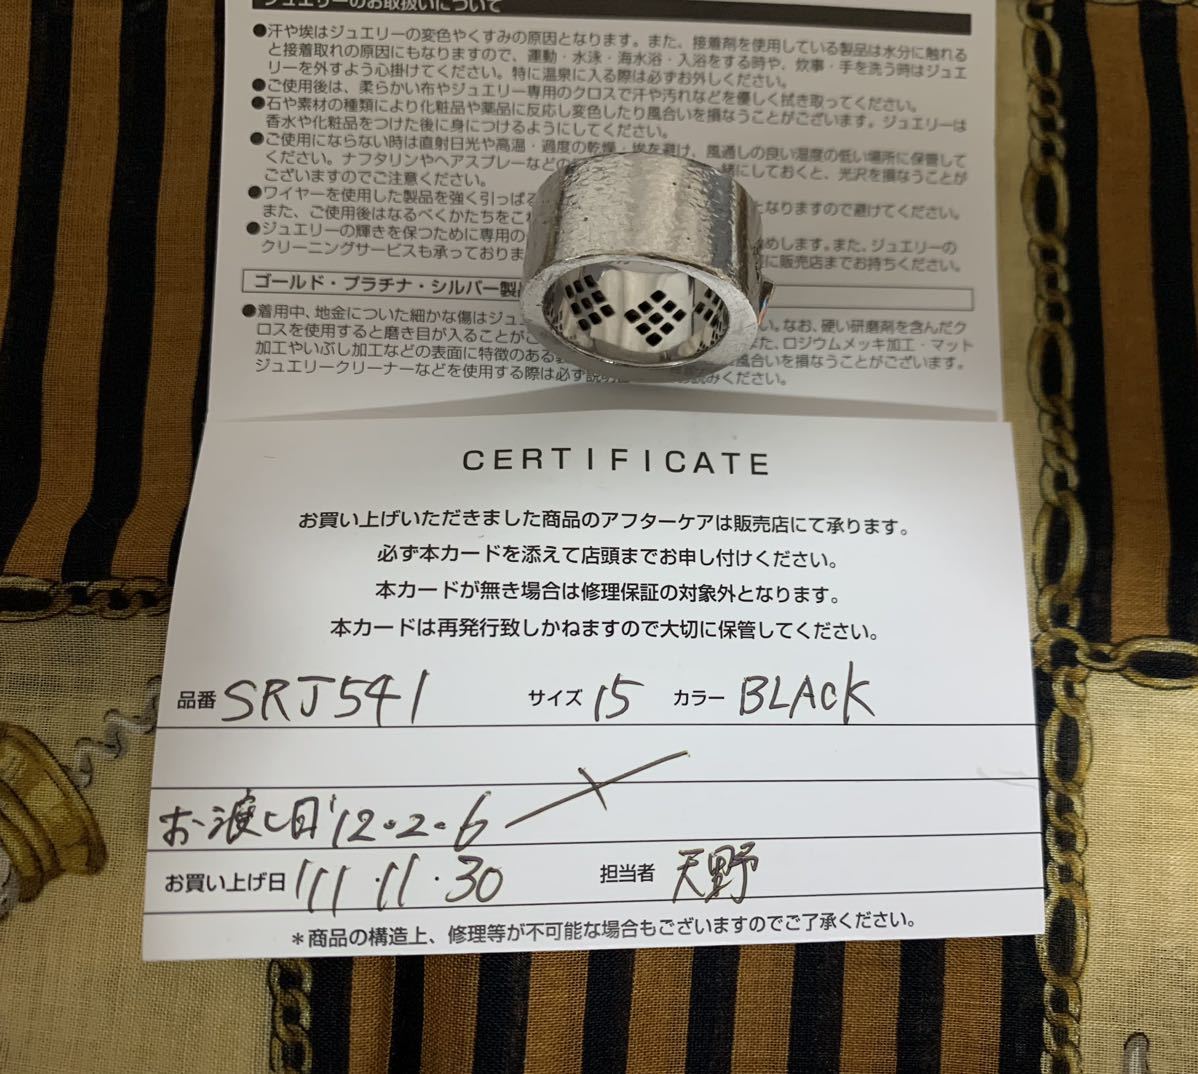 ジュエリーのお取扱いについて
●汗や埃はジュエリーの変色やくすみの原因となります。また、接着剤を使用している製品は水分に触れる
と接着取れの原因にもなりますので、運動・水泳・海水浴・入浴をする時や、炊事・手を洗う時はジュエ
リーを外すよう心掛けてください。特に温泉に入る際は必ずお外しください。
●ご使用後は、柔らかい布やジュエリー専用のクロスで汗や汚れなどを優しく拭き取ってください。
●石や素材の種類により化粧品や薬品に反応し変色したり風合いを損なうことがございます。ジュエリーは
香水や化粧品をつけた後に身につけるようにしてください。
●ご使用にならない時は直射日光や高温・過度の乾燥・埃を避け、風通しの良い湿度の低い場所に保管して
ください。ナフタリンやヘアスプレーなどの 緒にしておくと、光沢を損なうことが
ございますのでご注意ください。
●ワイヤーを使用した製品を強く引っぱる となりますので避けてください。
また、ご使用後はなるべくかたちをこわ
●ジュエリーの輝きを保つために専用の めします。また、ジュエリーの
クリーニングサービスも承っておりま に販売店までお持ちください。
ゴールド・プラチナ・シルバー製
●着用中、地金についた細かな傷はジュエ い。なお、硬い研磨剤を含んだク
ロスを使用すると磨き目が入ることがご た、ロジウムメッキ加工・マット
加工やいぶし加工などの表面に特徴のある 風合いを損なうことがございます。
ジュエリークリーナーなどを使用する際は必ず説明 読みください。
CERTIFICATE
お買い上げいただきました商品のアフターケアは販売店にて承ります。
必ず本カードを添えて店頭までお申し付けください。
本カードが無き場合は修理保証の対象外となります。
本カードは再発行致しかねますので大切に保管してください。
品番 SRJ541 サイズ 15 カラー BLACK
お渡し日 '12.2.6
お買い上げ日 '11.11.30 担当者 天野
＊商品の構造上、修理等が不可能な場合もございますのでご了承ください。